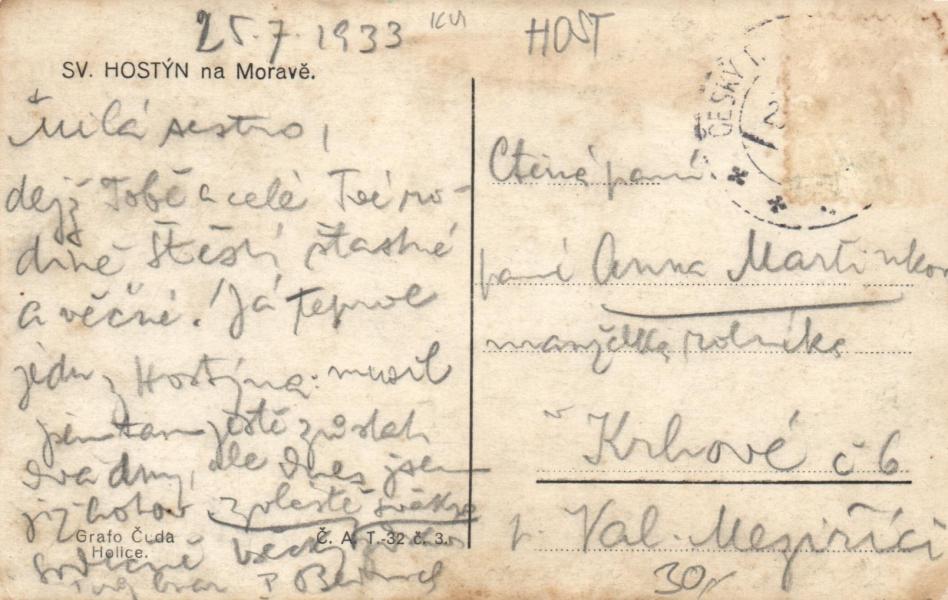 25.7.1933
HOST
SV. HOSTÝN na Moravě.
Milá sestro,
dejž Tobě a celé Tvé ro-
dině štěstí šťastné
a věčné! Já teprve
jedu z Hostýna: musil
jsem tam ještě zůstati
dva dny, ale dnes jsem
již hotov zvláště
Srdečně
Tvůj bratr P.
Grafo Čuda
Holice.
Č. A. T.-32 č. 3.
ČESKÝ T
Ctěná paní
paní Anna Martinkov
manželka rolníka
v Krhové č 6
p. Val. Meziříčí
30,-